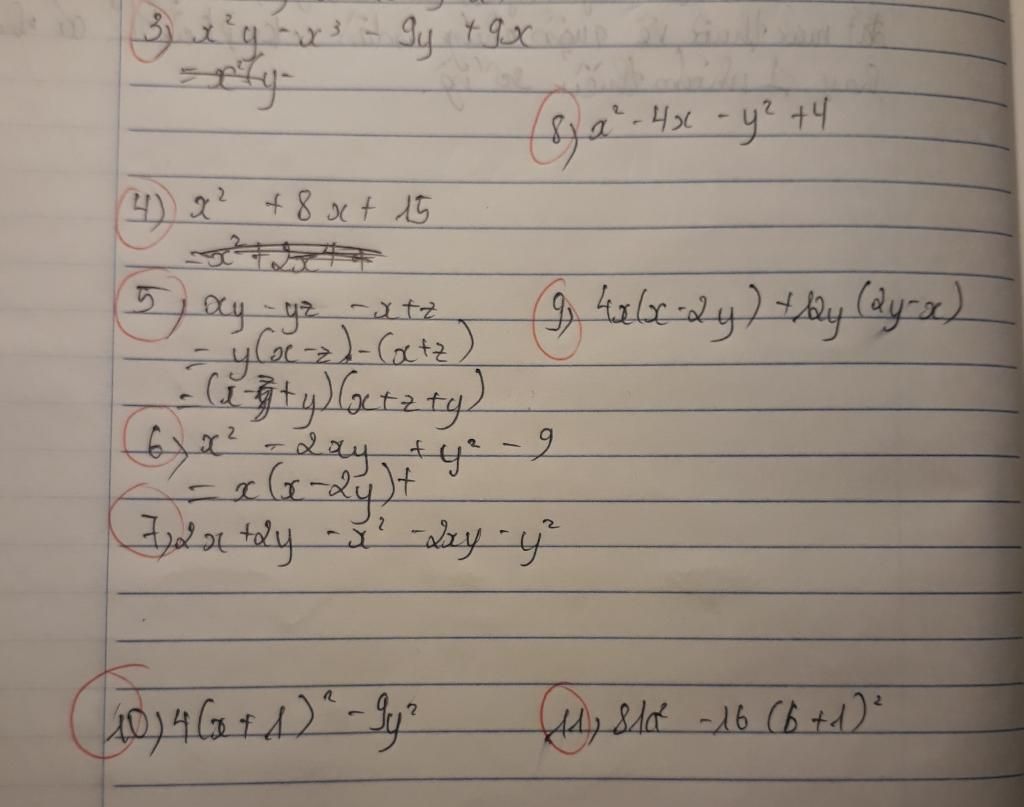 3) x²y - x³ - 9y + 9x
= x²y -
8) x² - 4x - y² + 4
4) x² + 8x + 15
= x² + 2x + 4
5) xy - yz - x + z
= y(x - z) - (x + z)
= (x - z + y)(x + z + y)
6) x² - 2xy + y² - 9
= x(x - 2y) +
7) 2x + 2y - x² - 2xy - y²
9) 4x(x - 2y) + 12y(2y - x)
10) 4(x + 1)² - 9y²
11) 81a² - 16(b + 1)²